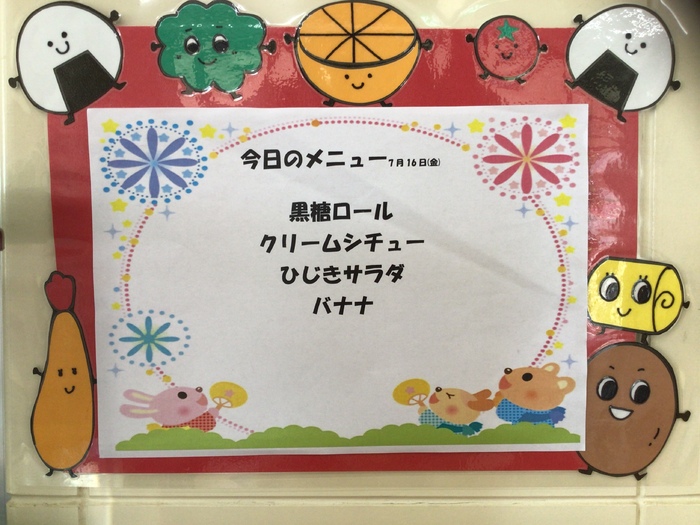 今日のメニュー 7月16日(金)
黒糖ロール
クリームシチュー
ひじきサラダ
バナナ